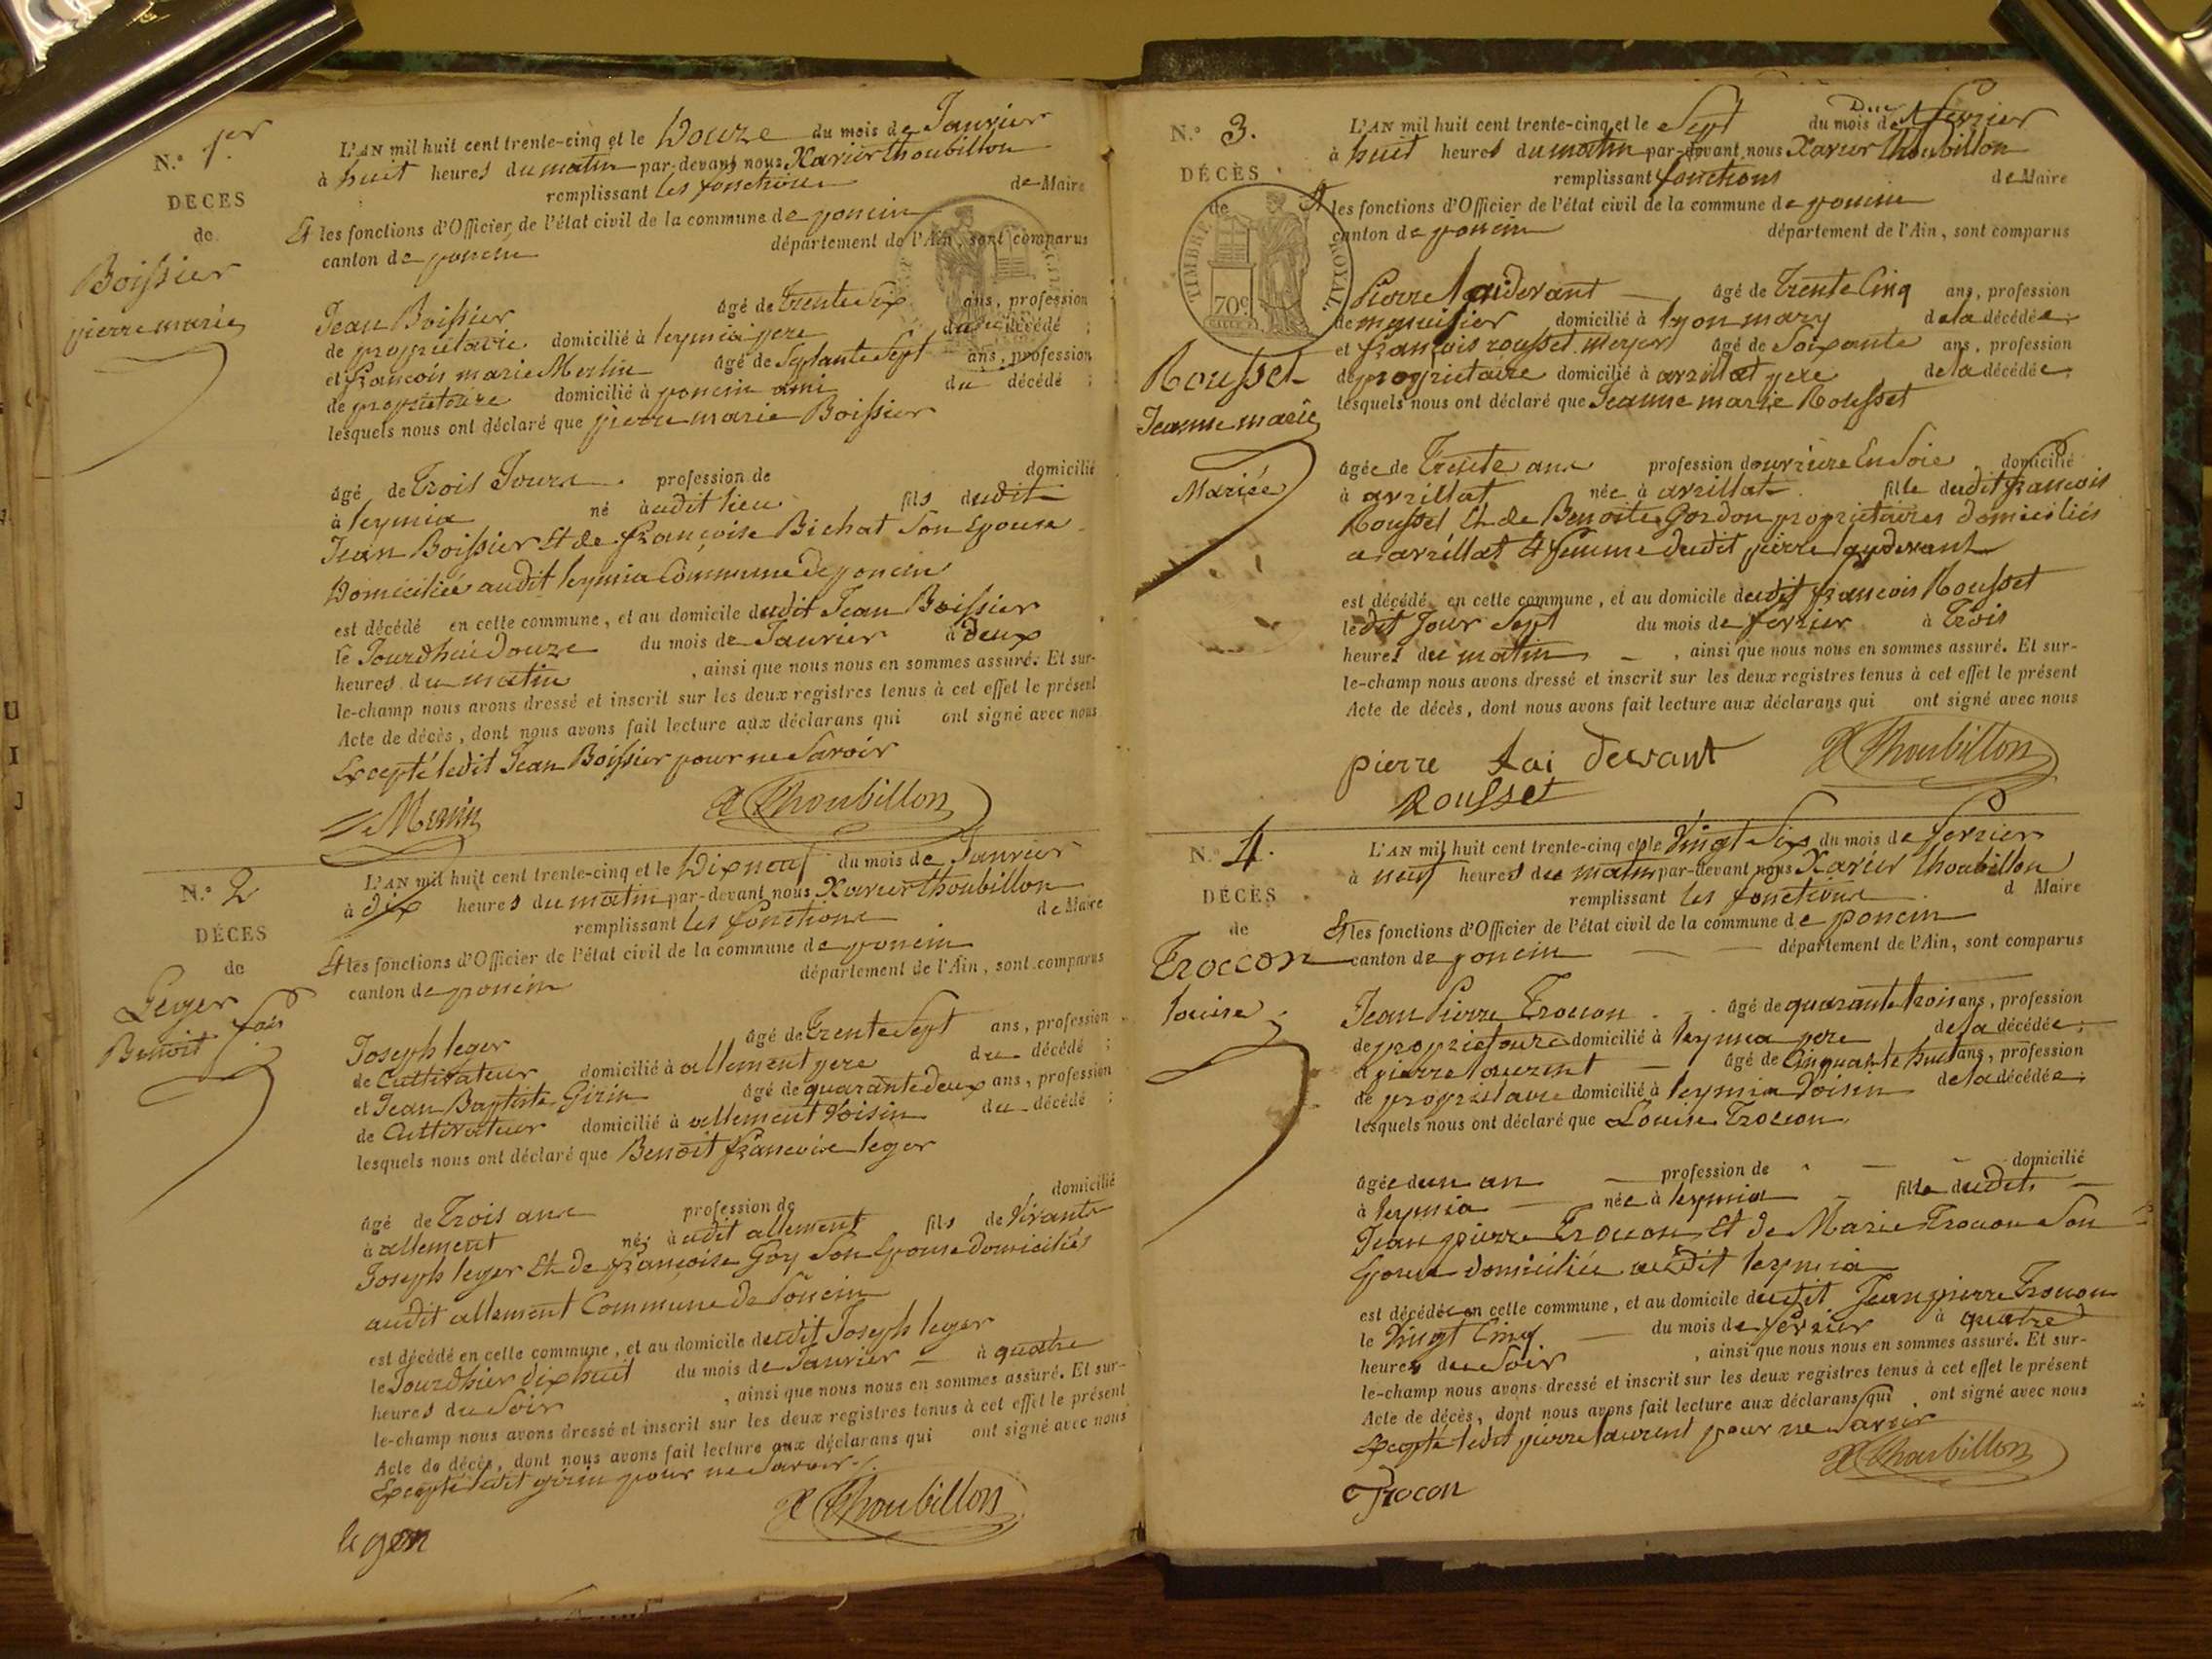 N.o 1.er
DÉCÈS
de
Boissier
pierre marie
L'AN mil huit cent trente-cinq et le Douze du mois de Janvier
à huit heures du matin par-devant nous Xavier thoubillon
remplissant les fonctions de Maire
Et les fonctions d'Officier de l'état civil de la commune de poncin
canton de poncin département de l'Ain, sont comparus
Jean Boissier âgé de trente Six ans, profession
de propriétaire domicilié à leymia pere du décédé ;
et françois marie Merlin âgé de Septante Sept ans, profession
de propriétaire domicilié à poncin ami du décédé ;
lesquels nous ont déclaré que pierre marie Boissier
âgé de trois Jours profession de domicilié
à leymia né audit lieu fils dudit
Jean Boissier Et de françoise Bichat Son Epouse
Domiciliée audit leymia Commune de poncin
est décédé en cette commune, et au domicile dudit Jean Boissier
le Jourdhui douze du mois de Janvier à deux
heures du matin , ainsi que nous nous en sommes assuré. Et sur-
le-champ nous avons dressé et inscrit sur les deux registres tenus à cet effet le présent
Acte de décès, dont nous avons fait lecture aux déclarans qui ont signé avec nous
Excepté ledit Jean Boissier pour ne Savoir
X Thoubillon
N.o 2
DÉCES
de
Leger
Benoit fois
L'AN mil huit cent trente-cinq et le Dix neuf du mois de Janvier
à dix heures du matin par-devant nous Xavier thoubillon
remplissant les fonctions de Maire
Et les fonctions d'Officier de l'état civil de la commune de poncin
canton de poncin département de l'Ain, sont comparus
Joseph leger âgé de trente Sept ans, profession
de Cultivateur domicilié à allement pere du décédé ;
et Jean Baptiste Girin âgé de quarante deux ans, profession
de Cultivateur domicilié à allement Voisin du décédé ;
lesquels nous ont déclaré que Benoit françois leger
âgé de trois ans profession de domicilié
à allement né audit allement fils de Vivants
Joseph leger Et de françoise Goy Son Epouse domiciliés
audit allement Commune de Poncin
est décédé en cette commune, et au domicile dudit Joseph leger
le Jourdhier dix huit du mois de Janvier à quatre
heures du Soir , ainsi que nous nous en sommes assuré. Et sur-
le-champ nous avons dressé et inscrit sur les deux registres tenus à cet effet le présent
Acte de décès, dont nous avons fait lecture aux déclarans qui ont signé avec nous
Excepté ledit girin pour ne Savoir
leger
X Thoubillon
N.o 3.
DÉCÈS
de
TIMBRE ROYAL.
70c
Rousset
Jeanne marie
Mariée
L'AN mil huit cent trente-cinq et le Sept du mois de fevrier
à huit heures du matin par-devant nous Xavier thoubillon
remplissant fonctions de Maire
Et les fonctions d'Officier de l'état civil de la commune de poncin
canton de poncin département de l'Ain, sont comparus
Pierre Laidevant âgé de trente Cinq ans, profession
de menuisier domicilié à lyon mary de la décédée ;
et françois rousset âgé de Soixante ans, profession
de propriétaire domicilié à arzillat pere de la décédée ;
lesquels nous ont déclaré que Jeanne marie Rousset
âgée de trente ans profession douvriere En Soie domicilié
à arzillat née à arzillat fille dudit françois
Rousset Et de Benoite Gordon propriétaires domiciliés
a arzillat Et femme dudit pierre laydevant
est décédé en cette commune, et au domicile dudit françois Rousset
le dit Jour Sept du mois de fevrier à trois
heures du matin , ainsi que nous nous en sommes assuré. Et sur-
le-champ nous avons dressé et inscrit sur les deux registres tenus à cet effet le présent
Acte de décès, dont nous avons fait lecture aux déclarans qui ont signé avec nous
pierre lai devant X Thoubillon
Rousset
N.o 4.
DÉCÈS
de
Troccon
louise
L'AN mil huit cent trente-cinq et le Vingt Six du mois de fevrier
à neuf heures du matin par-devant nous Xavier thoubillon
remplissant les fonctions d Maire
Et les fonctions d'Officier de l'état civil de la commune de poncin
canton de poncin département de l'Ain, sont comparus
Jean Pierre Trocon âgé de quarante trois ans, profession
de propriétaire domicilié à leymia pere de la décédée ;
et pierre laurent âgé de Cinquante huit ans, profession
de propriétaire domicilié à leymia Voisin de la décédée ;
lesquels nous ont déclaré que Louise Trocon
âgée dun an profession de domicilié
à leymia née à leymia fille dudit
Jean pierre Trocon Et de Marie Trocon Son
Epouse domiciliée audit leymia
est décédée en cette commune, et au domicile dudit Jean pierre Trocon
le Vingt Cinq du mois de fevrier à quatre
heures du Soir , ainsi que nous nous en sommes assuré. Et sur-
le-champ nous avons dressé et inscrit sur les deux registres tenus à cet effet le présent
Acte de décès, dont nous avons fait lecture aux déclarans qui ont signé avec nous
Excepté ledit pierre laurent pour ne Savoir
X Thoubillon
Trocon